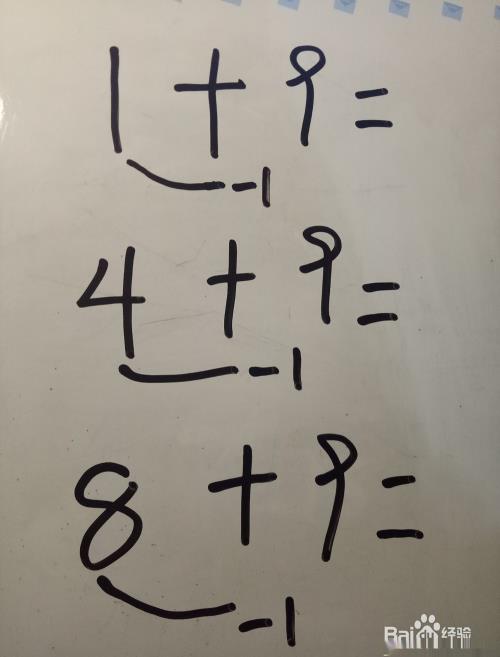 1 + 9 =
-1
4 + 9 =
-1
8 + 9 =
-1
Bai经验